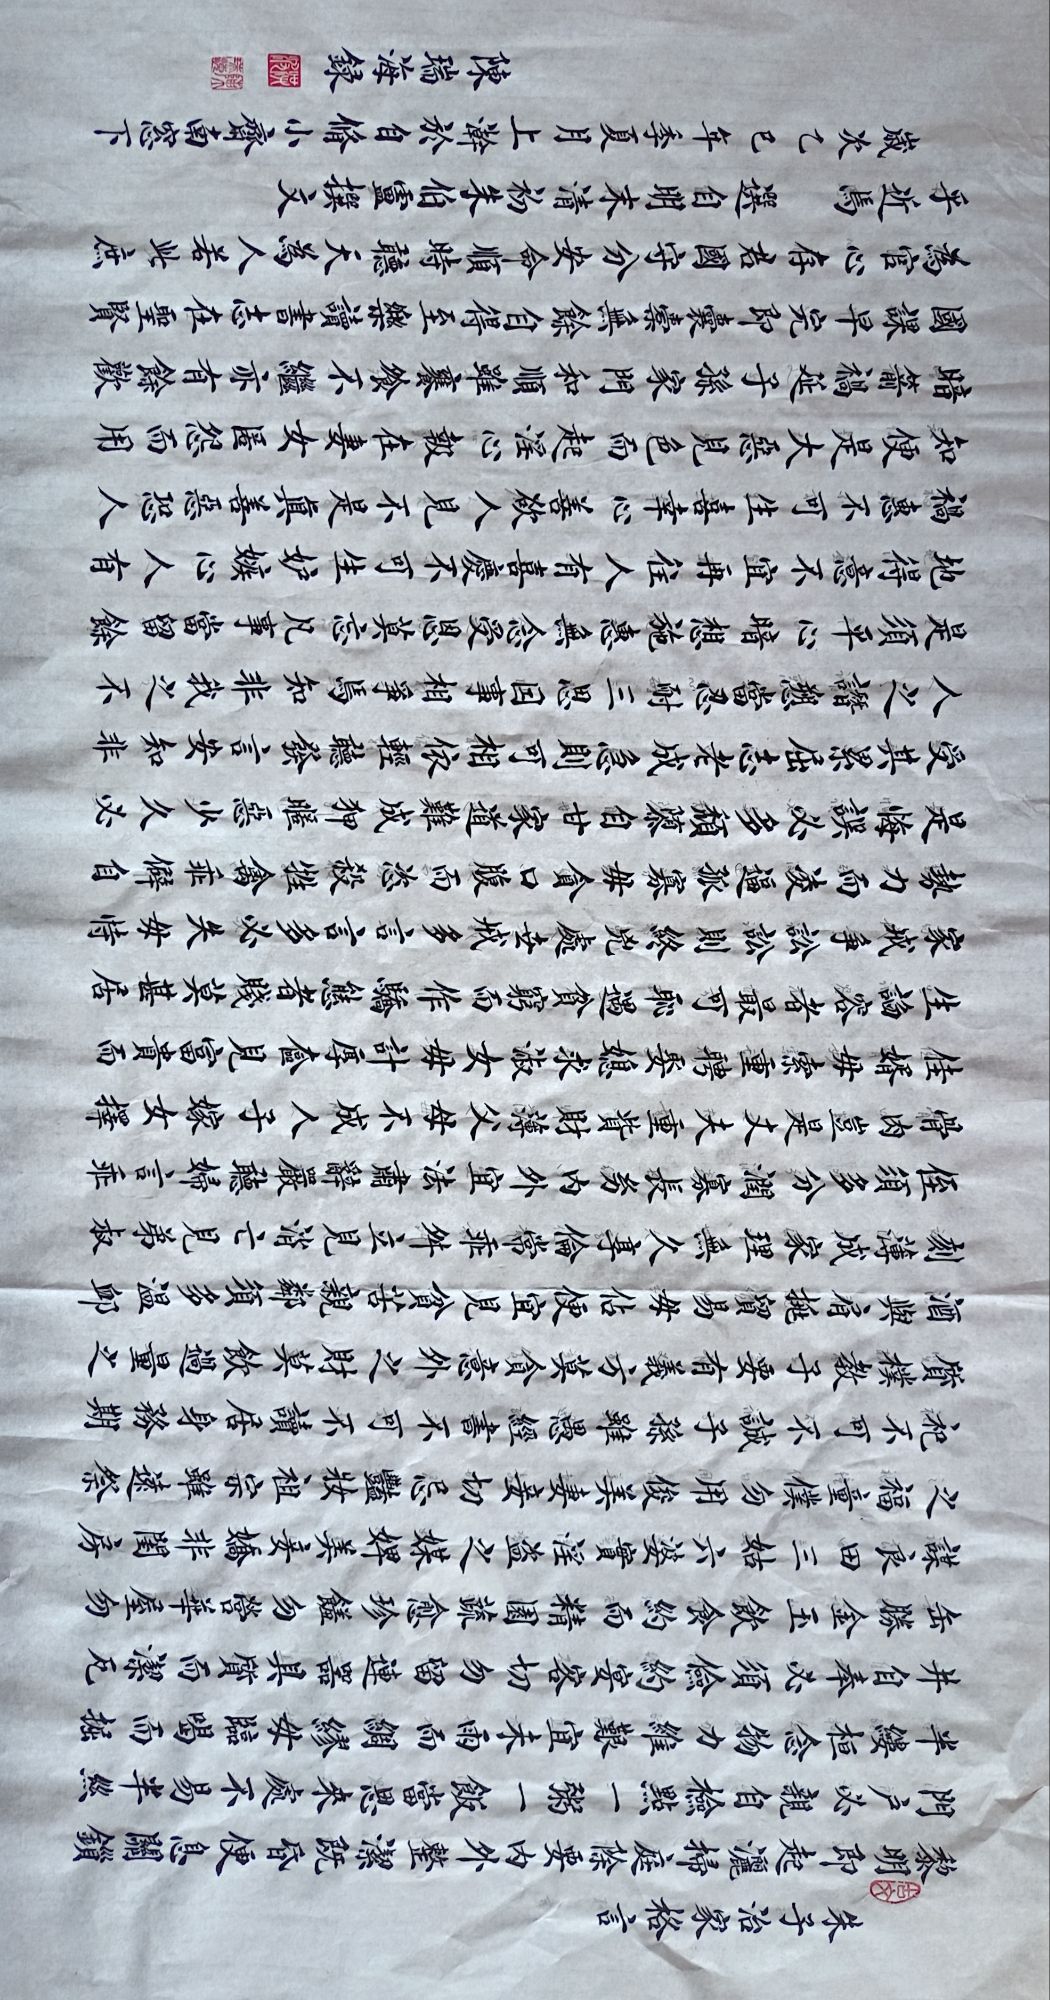 朱子治家格言
黎明即起灑掃庭除要內外整潔既昏便息關鎖
門戶必親自檢點一粥一飯當思來處不易半絲
半縷恒念物力維艱宜未雨而綢繆毋臨渴而掘
井自奉必須儉約宴客切勿留連器具質而潔瓦
缶勝金玉飲食約而精園蔬愈珍饈勿營華屋勿
謀良田三姑六婆實淫盜之媒婢美妾嬌非閨房
之福童僕勿用俊美妻妾切忌豔妝祖宗雖遠祭
祀不可不誠子孫雖愚經書不可不讀居身務期
質樸教子要有義方莫貪意外之財莫飲過量之
酒與肩挑貿易毋佔便宜見貧苦親鄰須多溫卹
刻薄成家理無久享倫常乖舛立見消亡兄弟叔
侄須多分潤寡長幼內外宜法肅辭嚴聽婦言乖
骨肉豈是丈夫重貲財薄父母不成人子嫁女擇
佳婿毋索重聘娶媳求淑女毋計厚奩見富貴而
生諂容者最可恥遇貧窮而作驕態者賤莫甚居
家戒爭訟訟則終凶處世戒多言言多必失毋恃
勢力而凌逼孤寡毋貪口腹而恣殺牲禽乖僻自
是悔誤必多頹隳自甘家道難成狎暱惡少久必
受其累屈志老成急則可相依輕聽發言安知非
人之譖愬當忍耐三思因事相爭焉知非我之不
是須平心暗想施惠無念受恩莫忘凡事當留餘
地得意不宜再往人有喜慶不可生妒嫉心人有
禍患不可生喜幸心善欲人見不是真善惡恐人
知便是大惡見色而起淫心報在妻女匿怨而用
暗箭禍延子孫家門和順雖饔飧不繼亦有餘歡
國課早完即囊橐無餘自得至樂讀書志在聖賢
為官心存君國守分安命順時聽天為人若此庶
乎近焉　選自明末清初朱伯廬撰文
歲次乙巳年季夏月上澣於自脩小齋南窓下
陳瑞海錄